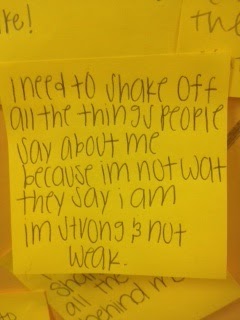 ke!
the
I need to shake off
all the things people
say about me
because im not wat
they say i am
im strong & not
weak.
all the
behind me